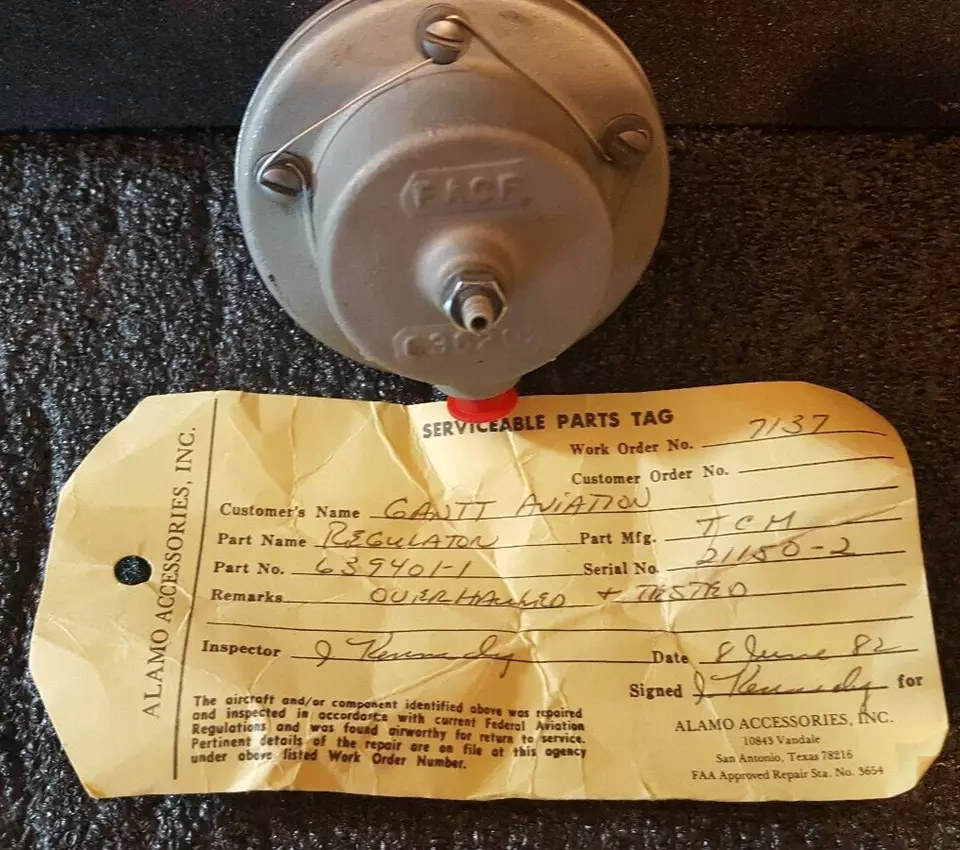 SERVICEABLE PARTS TAG
Work Order No. 7137
Customer Order No.
Customer's Name GANTT AVIATION
Part Name REGULATOR Part Mfg. TCM
Part No. 639401-1 Serial No. 21150-2
Remarks OVERHAULED + TESTED
Inspector J Kennedy Date 8 June 82
Signed J Kennedy for
The aircraft and/or component identified above was repaired
and inspected in accordance with current Federal Aviation
Regulations and was found airworthy for return to service.
Pertinent details of the repair are on file at this agency
under above listed Work Order Number.
ALAMO ACCESSORIES, INC.
10843 Vandale
San Antonio, Texas 78216
FAA Approved Repair Sta. No. 3654
ALAMO ACCESSORIES, INC.